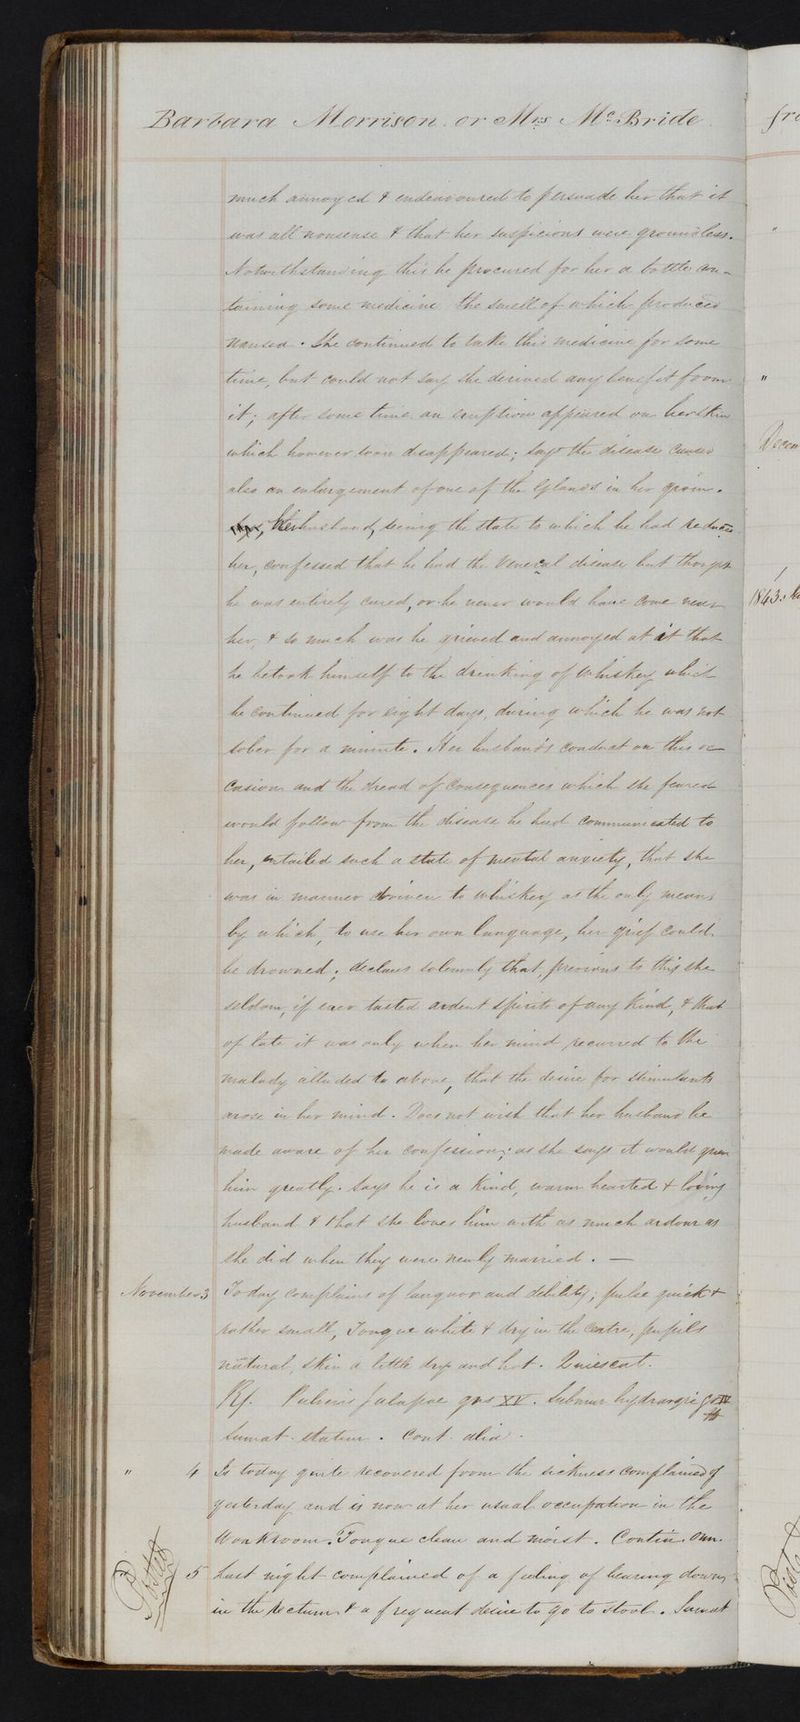 Barbara Morrison or Mrs McBride
much annoyed & endeavoured to persuade her that it
was all nonsense & that her suspicions were groundless.
Notwithstanding this he procured for her a bottle con-
taining some medicine the smell of which produced
nausea. She continued to take this medicine for some
time, but could not say she derived any benefit from
it; after some time an eruption appeared on her skin
which however soon disappeared; says the disease caused
also an enlargement of one of the Glands in her groin.
Her husband, seeing the state to which he had reduced
her, confessed that he had the Venereal disease but thought
he was entirely cured, or he never would have come near
her, & so much was he grieved and annoyed at it that
he betook himself to the drinking of Whiskey which
he continued for eight days, during which he was not
sober for a minute. Her husband's conduct on this oc-
casion and the dread of Consequences which she feared
would follow from the disease he had communicated to
her, entailed such a state of mental anxiety, that she
was in manner driven to whiskey as the only means
by which, to use her own language, her grief could
be drowned; declares solemnly that, previous to this she
seldom, if ever tasted ardent spirits of any kind, & that
of late it was only when her mind recurred to the
malady alluded to above, that the desire for stimulants
arose in her mind. Does not wish that her husband be
made aware of her confession; as she says it would grieve
him greatly. Says he is a kind, warm hearted & loving
husband & that she loves him with as much ardour as
she did when they were newly married. —
November 3 Today complains of languor and debility; pulse quick &
rather small, Tongue white & dry in the centre, pupils
natural, skin a little dry and hot. Quiescent.
Rx. Pulveris Jalapae grs XV. Submur hydrargri grs IV
Sumat statim. Cont. alia.
" 4 Is today quite recovered from the sickness complained of
yesterday and is now at her usual occupation in the
Workroom. Tongue clean and moist. Contin. omn.
Posted 5 Last night complained of a feeling of bearing down
in the rectum & a frequent desire to go to stool. Sumat
"
"
1843